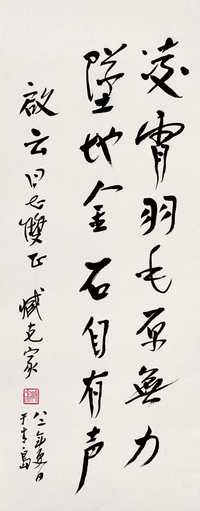 凌霄羽毛原無力
墜地金石自有声
啟云同志雙正
臧克家
八二年夏日
于青島